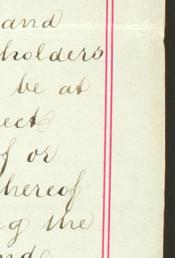 and
holders
be at
ect
f or
thereof
g the
and